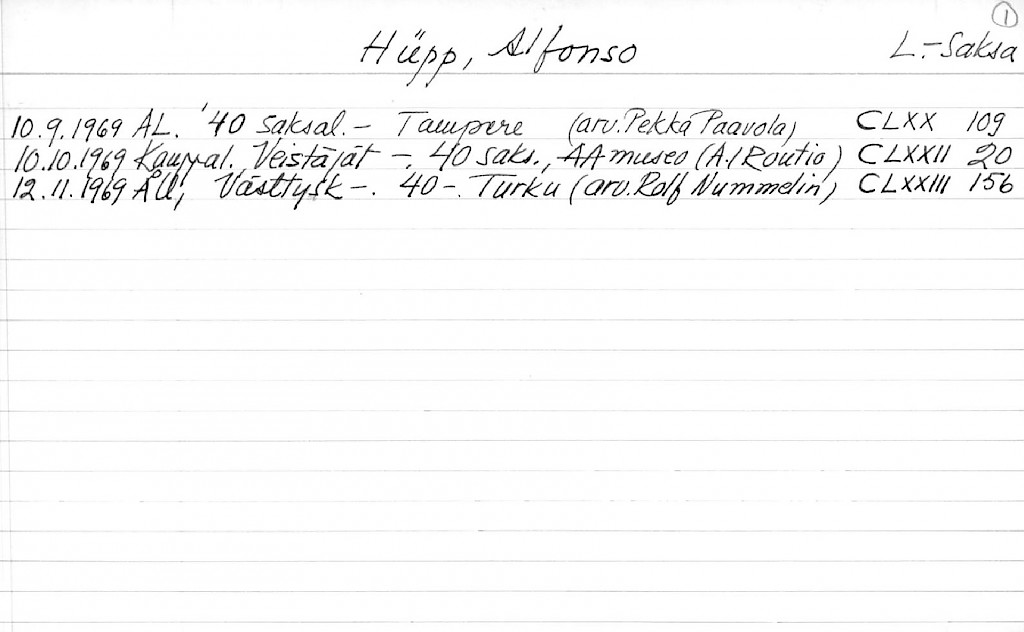 1
Hüpp, Alfonso L.-Saksa
10.9.1969 AL. '40 saksal.- Tampere (arv. Pekka Paavola) CLXX 109
10.10.1969 Kauppal. Veistäjät -. 40 saks., AA museo (A.I Routio) CLXXII 20
12.11.1969 ÅU, Västtysk -. 40 -. Turku (arv. Rolf Nummelin) CLXXIII 156